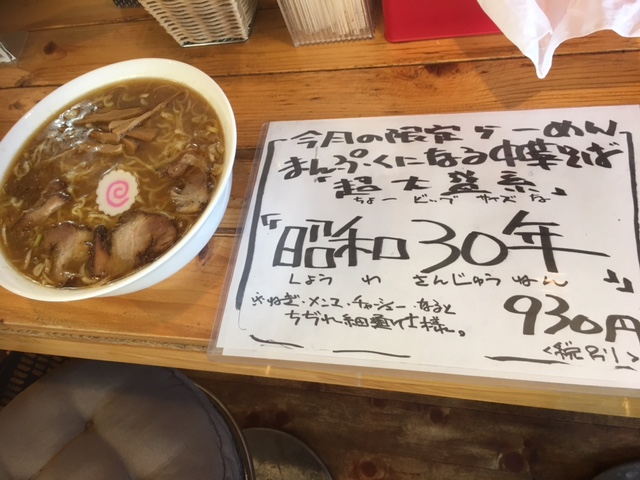 今月の限定らーめん
まんぷくになる中華そば
「超大盛系」
ちょー ビッグ サイズ な
『昭和30年』
しょう わ さんじゅう ねん
ねぎ・メンマ・チャーシュー・なると
ちぢれ細麺仕様。
930円
<税別>